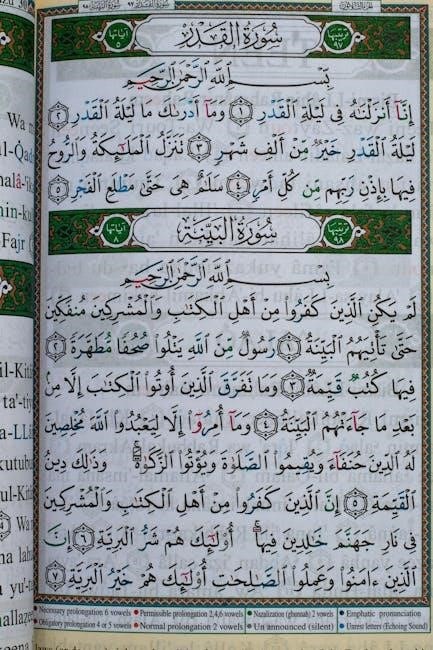 ترتيبها ٩٧ سُورَةُ الْقَدْرِ آياتها ٥
بِسْمِ اللَّهِ الرَّحْمَٰنِ الرَّحِيمِ
إِنَّآ أَنزَلْنَٰهُ فِى لَيْلَةِ ٱلْقَدْرِ ١ وَمَآ أَدْرَىٰكَ مَا لَيْلَةُ ٱلْقَدْرِ ٢
لَيْلَةُ ٱلْقَدْرِ خَيْرٌ مِّنْ أَلْفِ شَهْرٍ ٣ تَنَزَّلُ ٱلْمَلَٰٓئِكَةُ وَٱلرُّوحُ
فِيهَا بِإِذْنِ رَبِّهِم مِّن كُلِّ أَمْرٍ ٤ سَلَٰمٌ هِىَ حَتَّىٰ مَطْلَعِ ٱلْفَجْرِ ٥
ترتيبها ٩٨ سُورَةُ الْبَيِّنَةِ آياتها ٨
بِسْمِ اللَّهِ الرَّحْمَٰنِ الرَّحِيمِ
لَمْ يَكُنِ ٱلَّذِينَ كَفَرُوا۟ مِنْ أَهْلِ ٱلْكِتَٰبِ وَٱلْمُشْرِكِينَ مُنفَكِّينَ
حَتَّىٰ تَأْتِيَهُمُ ٱلْبَيِّنَةُ ١ رَسُولٌ مِّنَ ٱللَّهِ يَتْلُوا۟ صُحُفًا مُّطَهَّرَةً ٢
فِيهَا كُتُبٌ قَيِّمَةٌ ٣ وَمَا تَفَرَّقَ ٱلَّذِينَ أُوتُوا۟ ٱلْكِتَٰبَ إِلَّا مِنۢ
بَعْدِ مَا جَآءَتْهُمُ ٱلْبَيِّنَةُ ٤ وَمَآ أُمِرُوٓا۟ إِلَّا لِيَعْبُدُوا۟ ٱللَّهَ مُخْلِصِينَ
لَهُ ٱلدِّينَ حُنَفَآءَ وَيُقِيمُوا۟ ٱلصَّلَوٰةَ وَيُؤْتُوا۟ ٱلزَّكَوٰةَ ۚ وَذَٰلِكَ دِينُ
ٱلْقَيِّمَةِ ٥ إِنَّ ٱلَّذِينَ كَفَرُوا۟ مِنْ أَهْلِ ٱلْكِتَٰبِ وَٱلْمُشْرِكِينَ
فِى نَارِ جَهَنَّمَ خَٰلِدِينَ فِيهَآ ۚ أُو۟لَٰٓئِكَ هُمْ شَرُّ ٱلْبَرِيَّةِ ٦ إِنَّ
ٱلَّذِينَ ءَامَنُوا۟ وَعَمِلُوا۟ ٱلصَّٰلِحَٰتِ أُو۟لَٰٓئِكَ هُمْ خَيْرُ ٱلْبَرِيَّةِ ٧
Necessary prolongation 6 vowels • Permissible prolongation 2,4,6 vowels • Nazalization (ghunnah) 2 vowels • Emphatic pronunciation
Obligatory prolongation 4 or 5 vowels • Normal prolongation 2 vowels • Un announced (silent) • Unrest letters (Echoing Sound)